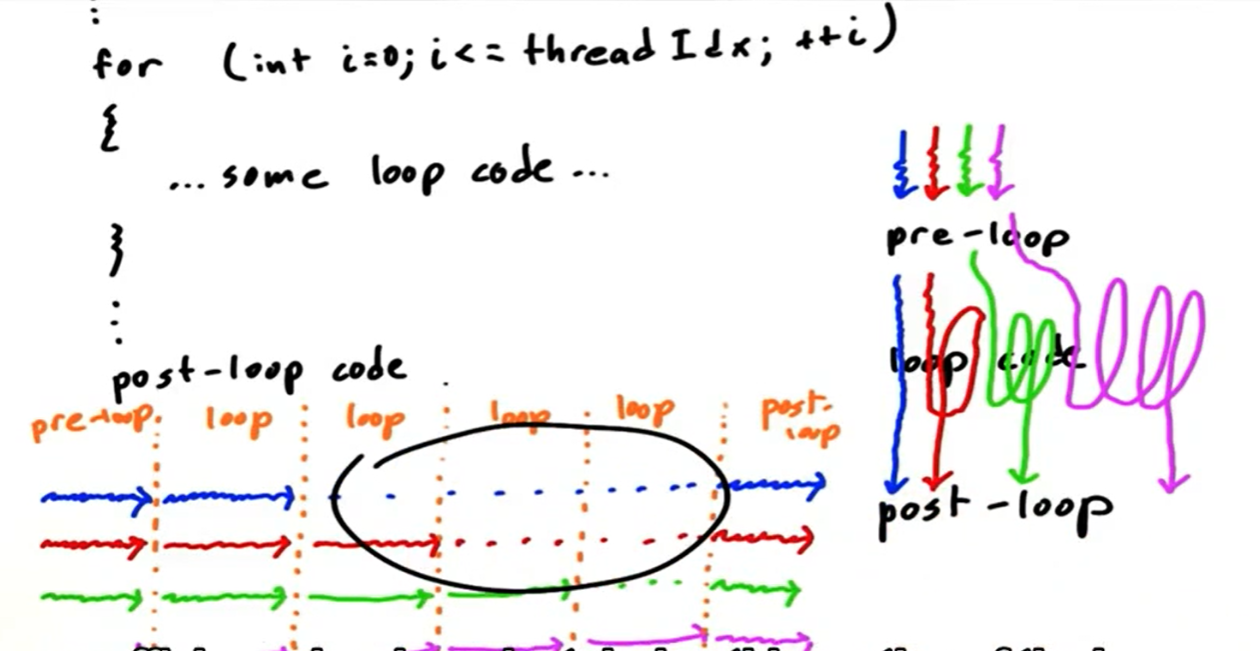 for (int i=0; i<= threadIdx; ++i)
{
... some loop code ...
}
post-loop code
pre-loop loop loop loop loop post-loop
pre-loop
loop code
post-loop